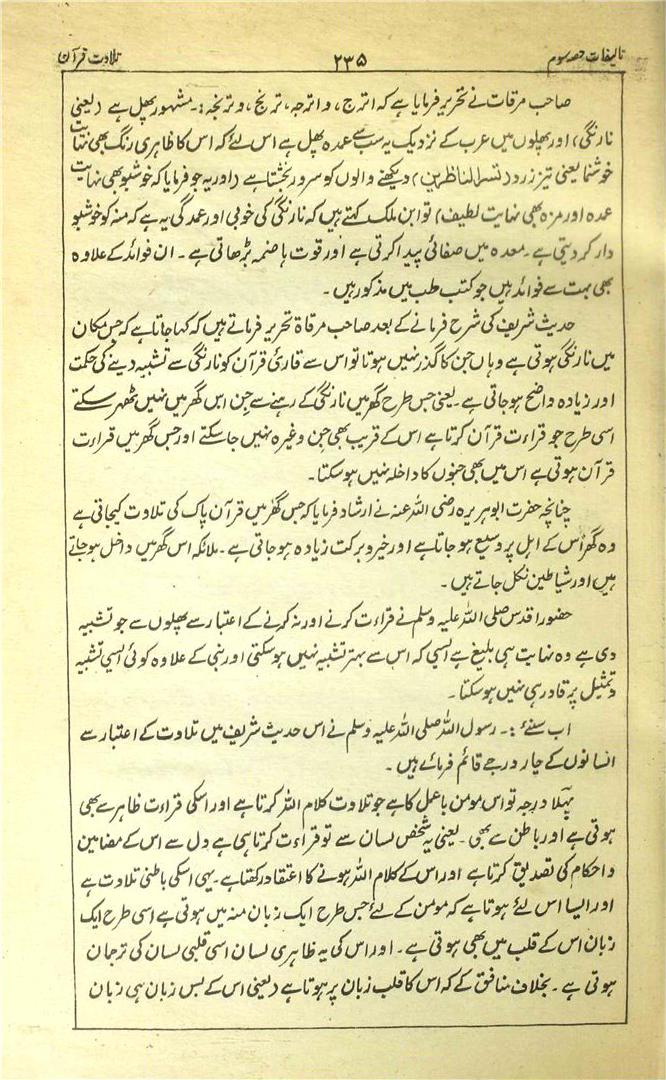 تالیفات حصہ سوم ۲۳۵ تلاوت قرآن
صاحب مرقات نے تحریر فرمایا ہے کہ اترج، واترجہ، ترنج، وترنجہ :۔ مشہور پھل ہے (یعنی
نارنگی) اور پھلوں میں عرب کے نزدیک یہ سب سے عمدہ پھل ہے اس لئے کہ اس کا ظاہری رنگ بھی نہایت
خوشنما یعنی تیز زرد (تسر الناظرین) دیکھنے والوں کو سرور بخشتا ہے (اور یہ جو فرمایا کہ خوشبو بھی نہایت
عمدہ اور مزہ بھی نہایت لطیف) تو ابن ملک کہتے ہیں کہ نارنگی کی خوبی اور عمدگی یہ ہے کہ منہ کو خوشبو
دار کر دیتی ہے۔ معدہ میں صفائی پیدا کرتی ہے اور قوت ہاضمہ بڑھاتی ہے۔ ان فوائد کے علاوہ
بھی بہت سے فوائد ہیں جو کتب طب میں مذکور ہیں۔
حدیث شریف کی شرح فرمانے کے بعد صاحب مرقاۃ تحریر فرماتے ہیں کہ کہا جاتا ہے کہ جس مکان
میں نارنگی ہوتی ہے وہاں جن کا گذر نہیں ہوتا تو اس سے قاریٔ قرآن کو نارنگی سے تشبیہ دینے کی حکمت
اور زیادہ واضح ہو جاتی ہے۔ یعنی جس طرح گھر میں نارنگی کے رہنے سے جن اس گھر میں نہیں ٹھہر سکتے
اسی طرح جو قراءت قرآن کرتا ہے اس کے قریب بھی جن وغیرہ نہیں جا سکتے اور جس گھر میں قراءت
قرآن ہوتی ہے اس میں بھی جنوں کا داخلہ نہیں ہو سکتا۔
چنانچہ حضرت ابو ہریرہ رضی اللہ عنہ نے ارشاد فرمایا کہ جس گھر میں قرآن پاک کی تلاوت کیجاتی ہے
وہ گھر اُس کے اہل پر وسیع ہو جاتا ہے اور خیر و برکت زیادہ ہو جاتی ہے۔ ملائکہ اس گھر میں داخل ہو جاتے
ہیں اور شیاطین نکل جاتے ہیں۔
حضور اقدس صلی اللہ علیہ وسلم نے قراءت کرنے اور نہ کرنے کے اعتبار سے پھلوں سے جو تشبیہ
دی ہے وہ نہایت ہی بلیغ ہے ایسی کہ اس سے بہتر تشبیہ نہیں ہو سکتی اور نبی کے علاوہ کوئی ایسی تشبیہ
و تمثیل پر قادر ہی نہیں ہو سکتا۔
اب سنئے :۔ رسول اللہ صلی اللہ علیہ وسلم نے اس حدیث شریف میں تلاوت کے اعتبار سے
انسانوں کے چار درجے قائم فرمائے ہیں۔
پہلا درجہ تو اس مومن باعمل کا ہے جو تلاوت کلام اللہ کرتا ہے اور اسکی قراءت ظاہر سے بھی
ہوتی ہے اور باطن سے بھی۔ یعنی یہ شخص لسان سے تو قراءت کرتا ہی ہے دل سے اس کے مضامین
و احکام کی تصدیق کرتا ہے اور اس کے کلام اللہ ہونے کا اعتقاد رکھتا ہے۔ یہی اسکی باطنی تلاوت ہے
اور ایسا اس لئے ہوتا ہے کہ مومن کے لئے جس طرح ایک زبان منہ میں ہوتی ہے اسی طرح ایک
زبان اس کے قلب میں بھی ہوتی ہے۔ اور اس کی یہ ظاہری لسان اسی قلبی لسان کی ترجمان
ہوتی ہے۔ بخلاف منافق کے کہ اس کا قلب زبان پر ہوتا ہے (یعنی اس کے بس زبان ہی زبان